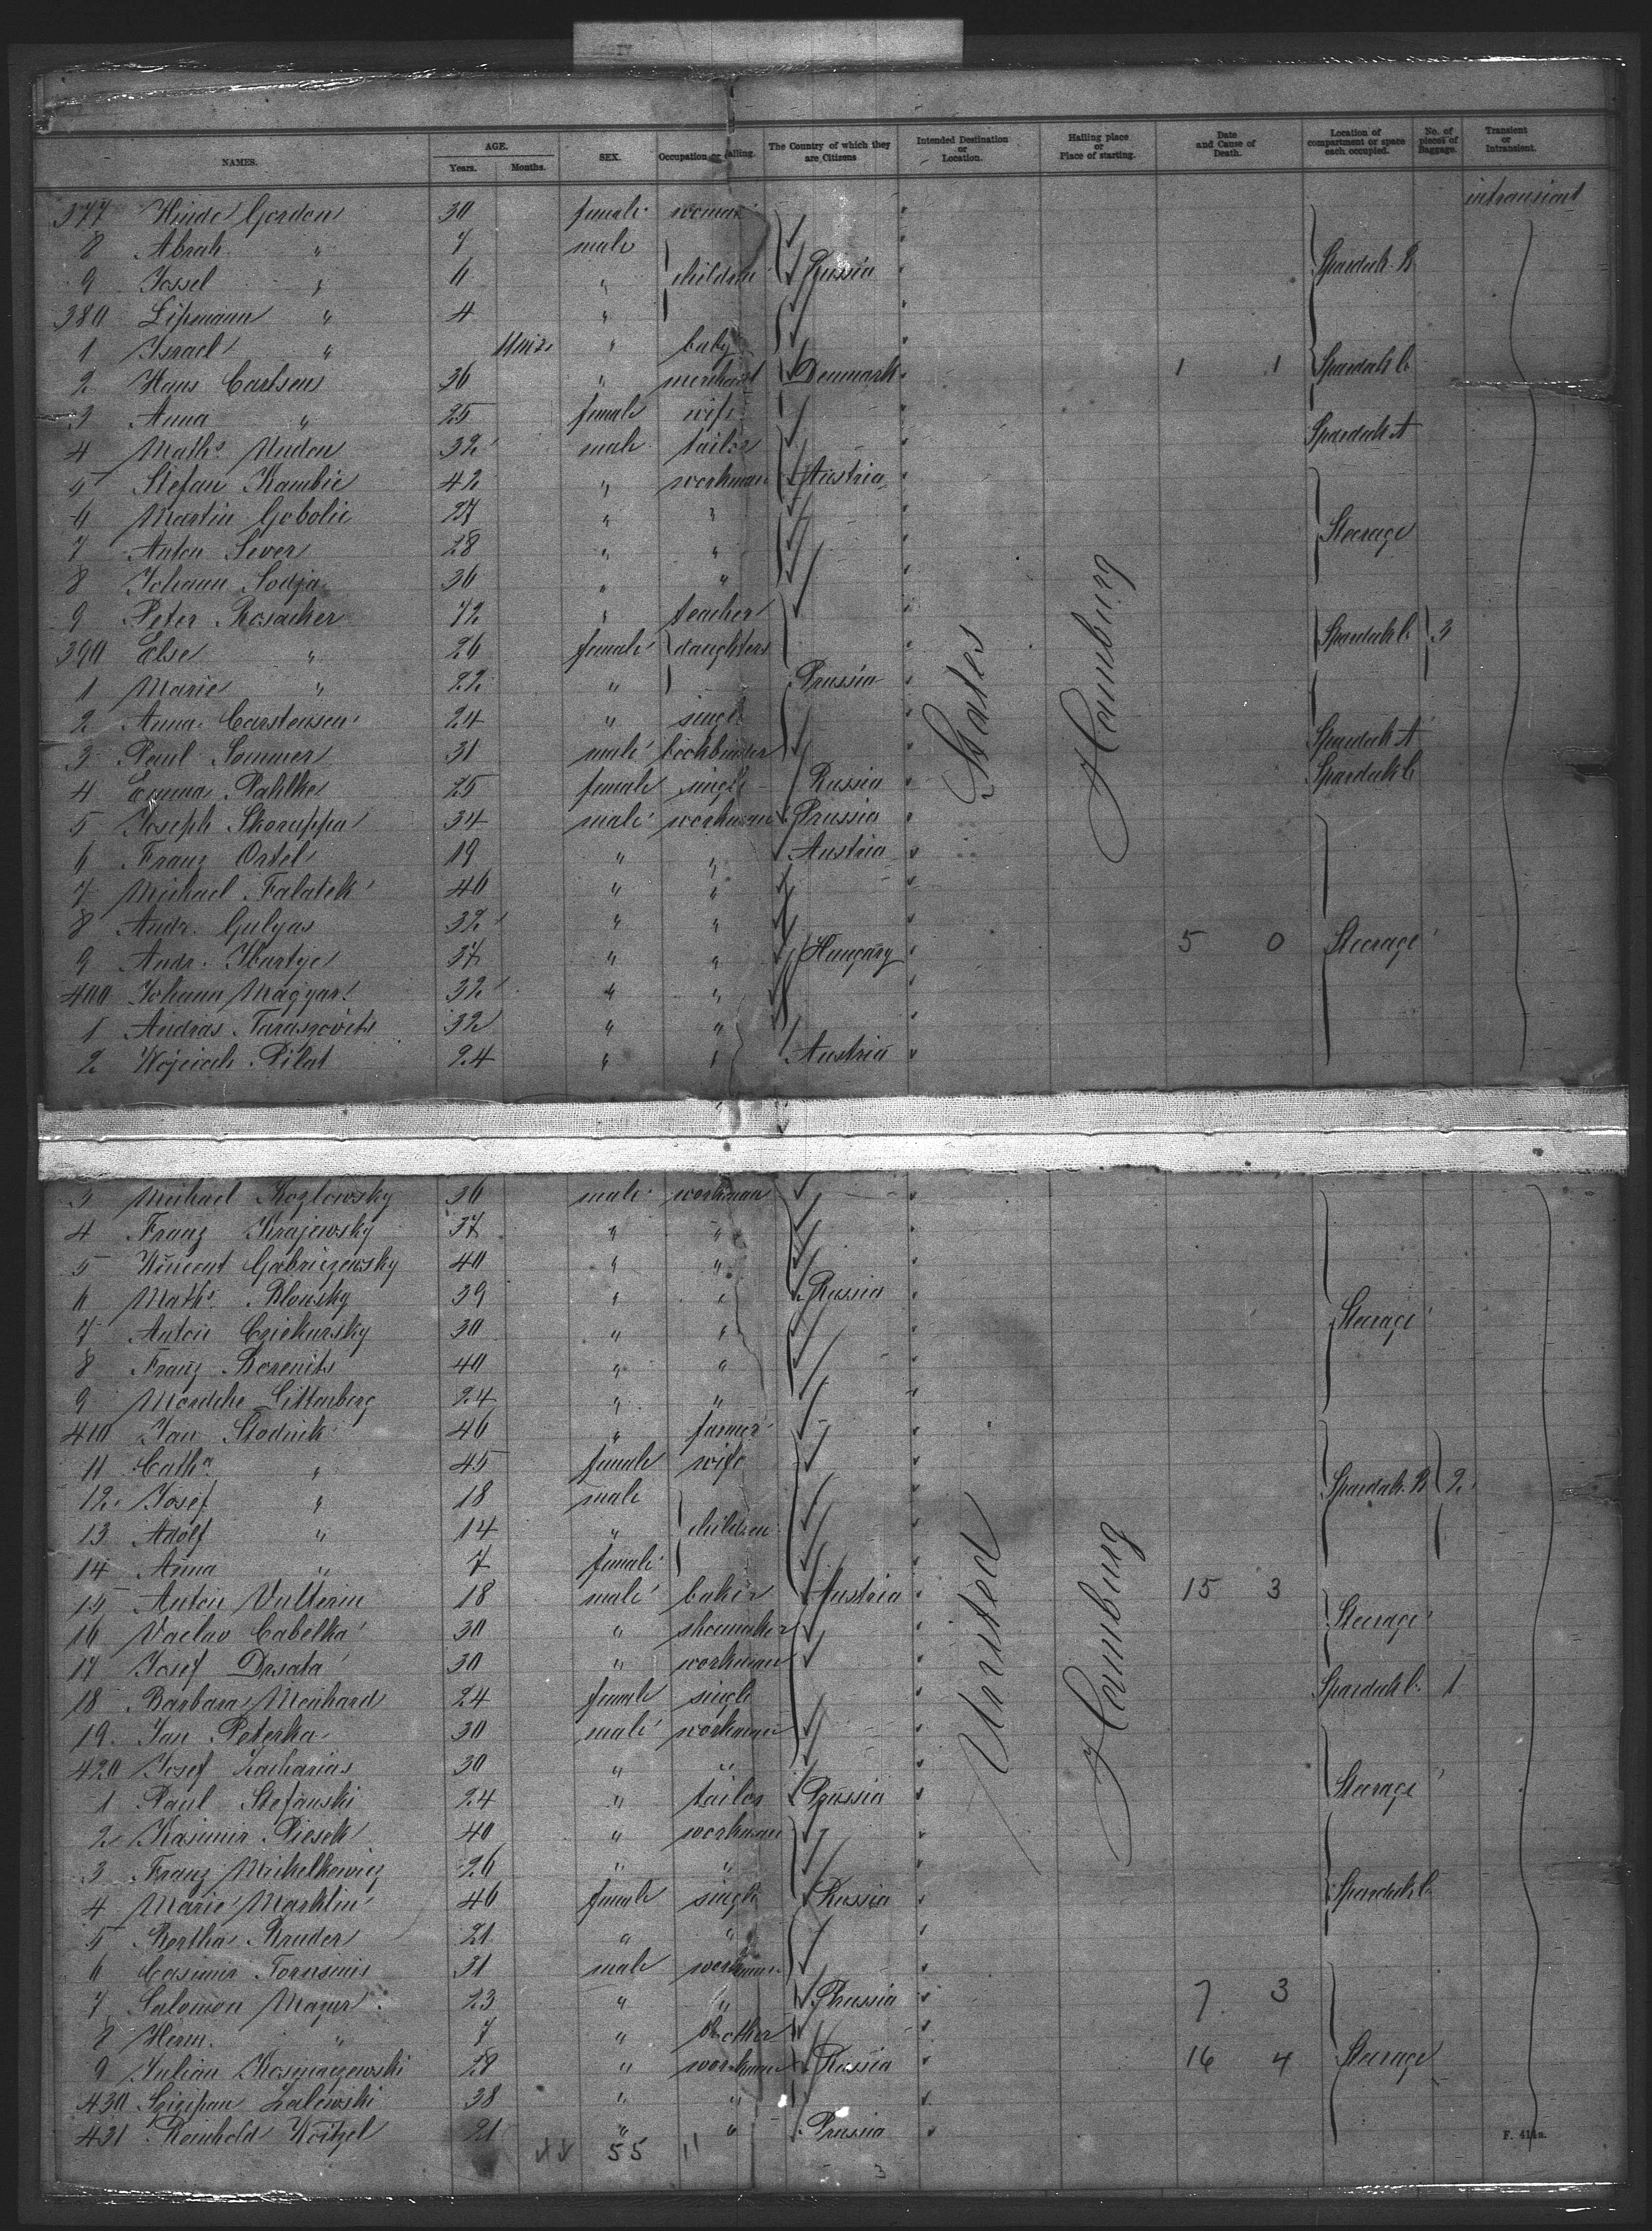 NAMES. AGE. Years. Months. SEX. Occupation or calling. The Country of which they are Citizens Intended Destination or Location. Hailing place or Place of starting. Date and Cause of Death. Location of compartment or space each occupied. No. of pieces of Baggage. Transient or Intransient.
377 Hinde Gordon 30 female woman intransient
8 Abrah. " 7 male
9 Jossel " 6 " children Russia Spardeck B
380 Lipmann " 4 "
1 Israel " " baby
2 Hans Carlsen 36 " merchant Denmark 1 1 Spardeck C
3 Anna " 25 female wife
4 Maths. 32 male tailor Spardeck A
5 Stefan Kambic 42 " workman Austria
6 Martin Gobolic 27 " "
7 Anton Sever 28 " " Steerage
8 Johann Sodja 36 " "
9 Peter Rosacker 72 " teacher
390 Else " 26 female daughters Spardeck C 3
1 Marie " 22 " Prussia
2 Anna Carstensen 24 " single
3 Paul Sommer 31 male bookbinder Spardeck A
4 Emma Pahlke 25 female single Russia Spardeck C
5 Joseph Skoruppa 34 male workman Prussia
6 Franz Ortel 19 " " Austria
7 Michael Falatek 46 " "
8 Andr. Gulyas 32 " "
9 Andr. 37 " " Hungary 5 0 Steerage
400 Johann Magyar 32 " "
1 Andras Taraszovits 32 " "
2 Wojciech Pilat 24 " " Austria
States
Hamburg
3 Michael Kozlowsky 36 male workman
4 Franz Krajewsky 37 " "
5 Vincent Gabriezewsky 40 " "
6 Maths. Blonsky 39 " " Russia
7 Anton Cziekursky 30 " " Steerage
8 Franz Borenits 40 " "
9 Mordche Littenberg 24 " "
410 Jan Slodnik 46 " farmer
11 Catha. " 45 female wife
12 Josef " 18 male Spardeck B 2
13 Adolf " 14 " children
14 Anna " 7 female
15 Anton Vulterin 18 male baker Austria 15 3
16 Vaclav Cabelka 30 " shoemaker Steerage
17 Josef Drsata 30 " workman
18 Barbara Monhard 24 female single Spardeck C 1
19 Jan Peterka 30 male workman
420 Josef Zacharias 30 " "
1 Paul Stefanski 24 " tailor Prussia Steerage
2 Kasimir Piesek 40 " workman
3 Franz Michelkewicz 26 " "
4 Marie Marklin 46 female single Russia Spardeck C
5 Bertha Bruder 21 " "
6 Casimir 31 male workman
7 Salomon Mayer 23 " " Prussia 7 3
8 Herm. " 7 " brother
9 Julian 28 " workman Russia 16 4 Steerage
430 Szczepan Zalewski 38 " "
431 Reinhold Koitzel 21 " " Prussia
United
Hamburg
55 11
3
F. 414a.